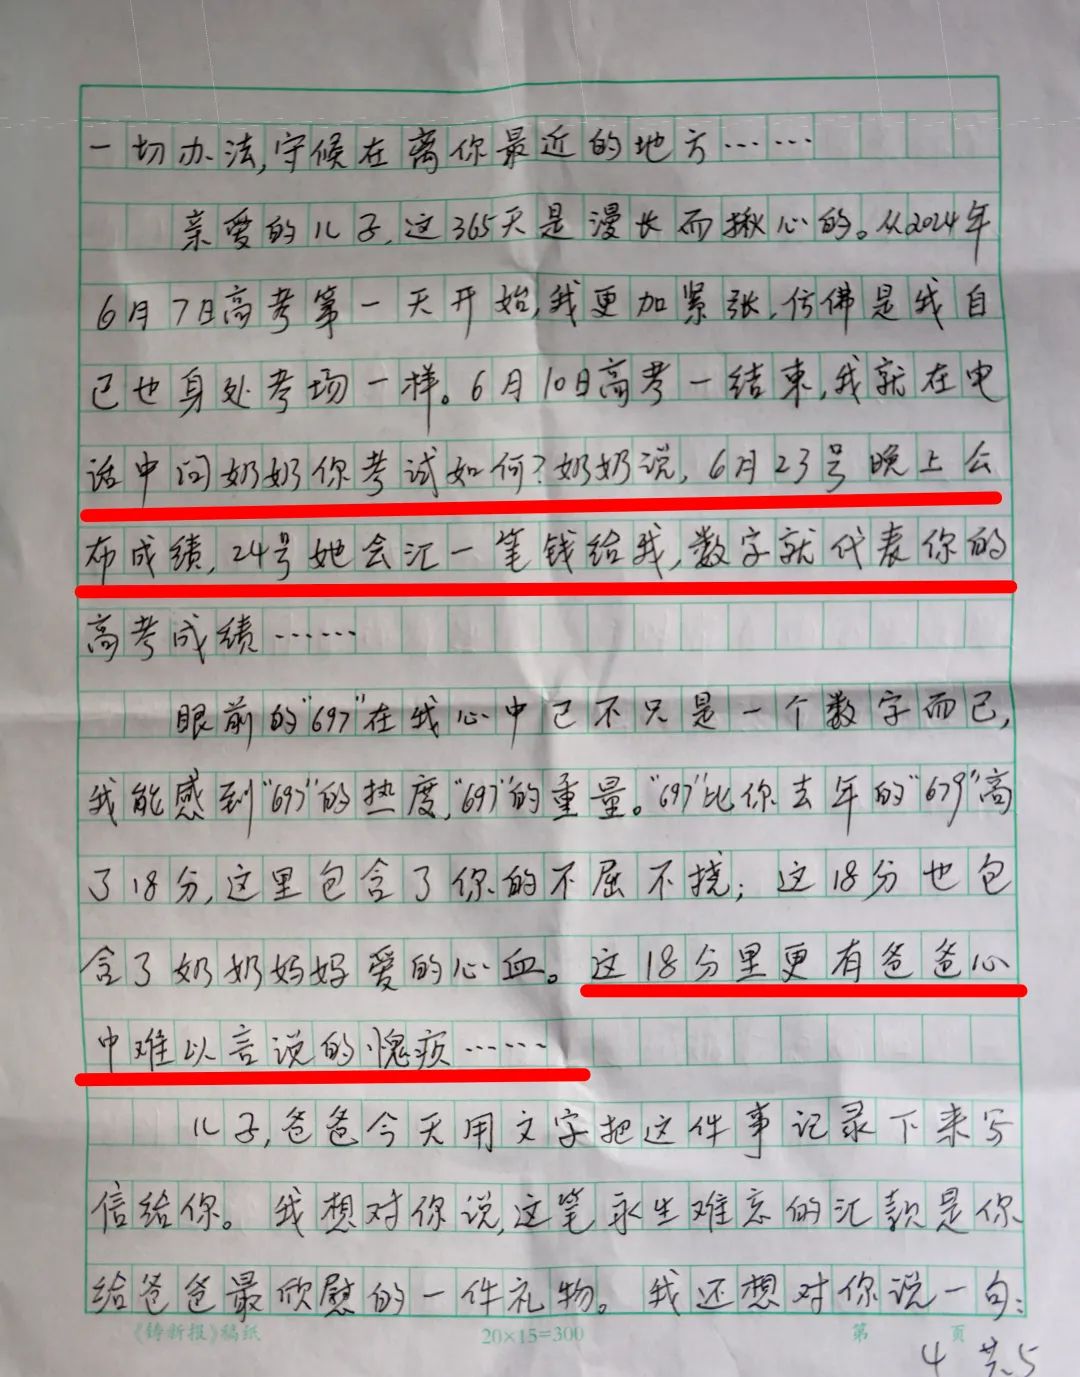 一切办法,守候在离你最近的地方……
亲爱的儿子,这365天是漫长而揪心的。从2024年
6月7日高考第一天开始,我更加紧张,仿佛是我自
己也身处考场一样。6月10日高考一结束,我就在电
话中问奶奶你考试如何?奶奶说,6月23号晚上公
布成绩,24号她会汇一笔钱给我,数字就代表你的
高考成绩……
眼前的“697”在我心中已不只是一个数字而已,
我能感到“697”的热度,“697”的重量。“697”比你去年的“679”高
了18分,这里包含了你的不屈不挠;这18分也包
含了奶奶妈妈爱的心血。这18分里更有爸爸心
中难以言说的愧疚……
儿子,爸爸今天用文字把这件事记录下来写
信给你。我想对你说,这笔永生难忘的汇款是你
给爸爸最欣慰的一件礼物。我还想对你说一句:
《铸新报》稿纸 20×15=300 第 页
4 共5